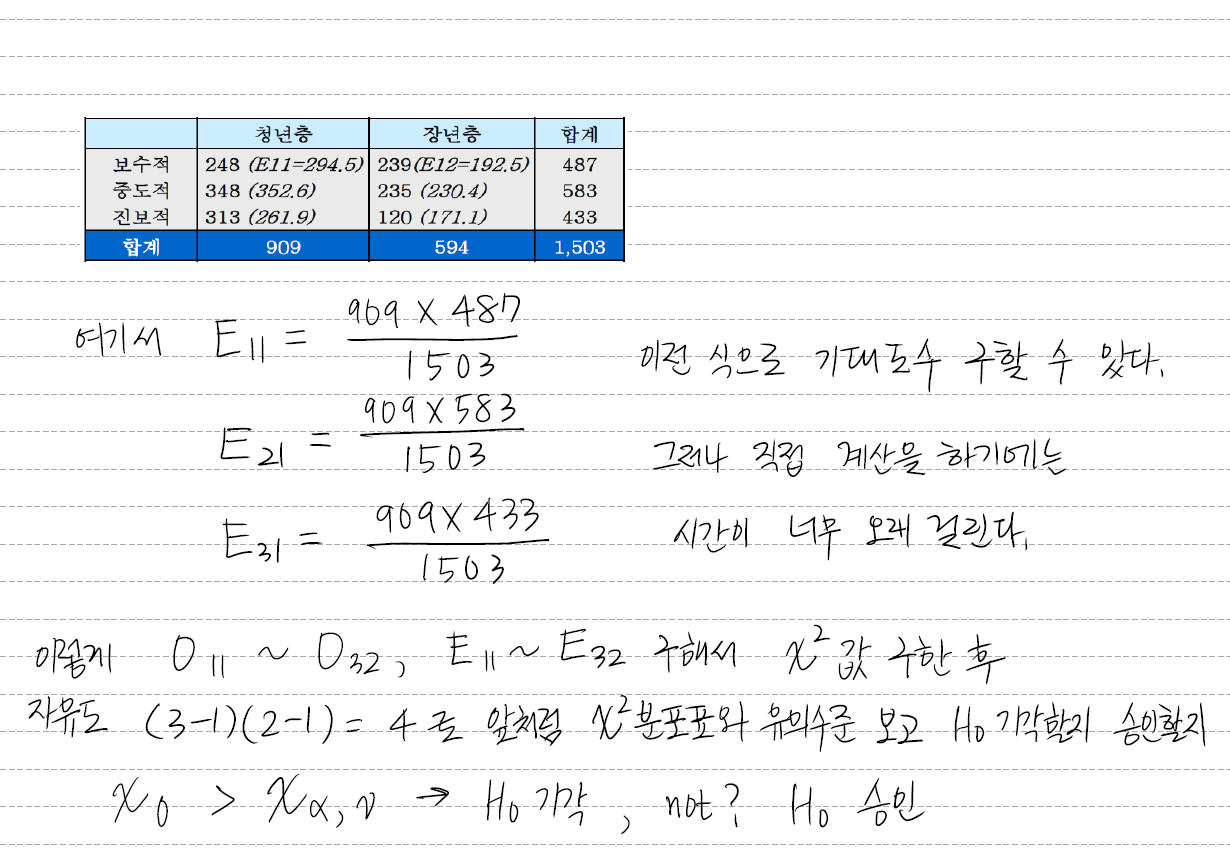 청년층 장년층 합계
보수적 248 (E11=294.5) 239(E12=192.5) 487
중도적 348 (352.6) 235 (230.4) 583
진보적 313 (261.9) 120 (171.1) 433
합계 909 594 1,503
여기서 E11 = 909 X 487 / 1503 이전 식으로 기대도수 구할 수 있다.
E21 = 909 X 583 / 1503 그러나 직접 계산을 하기에는
E31 = 909 X 433 / 1503 시간이 너무 오래 걸린다.
이렇게 O11 ~ O32, E11 ~ E32 구해서 χ² 값 구한 후
자유도 (3-1)(2-1) = 4 로 앞처럼 χ² 분포표와 유의수준 보고 H0 기각할지 승인할지
χ0 > χα,ν → H0 기각, not? H0 승인